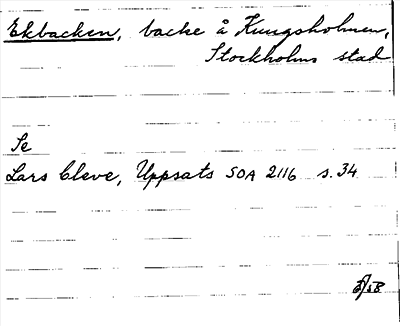 Ekbacken, backe å Kungsholmen,
Stockholms stad
Se
Lars Cleve, Uppsats SOA 2116 s. 34